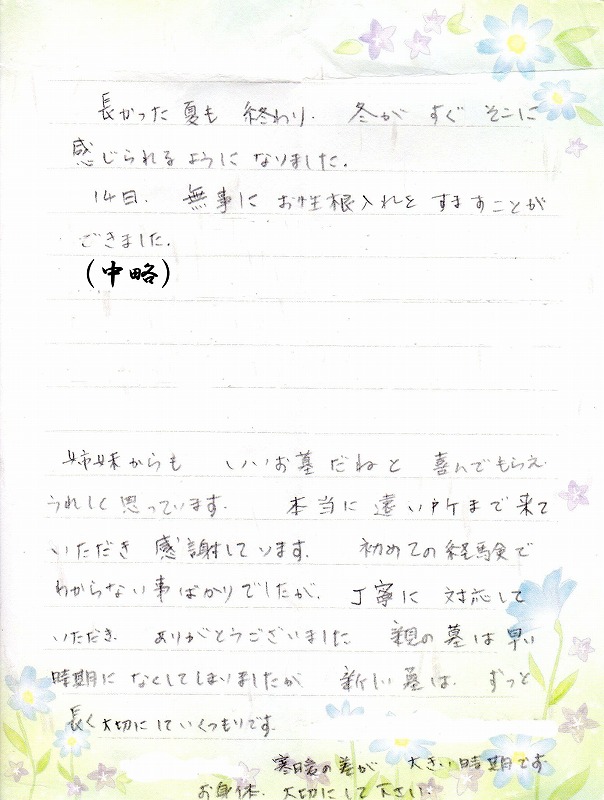 長かった夏も 終わり. 冬が すぐ そこに
感じられるように なりました.
14日. 無事に お性根入れを すますことが
できました.
(中略)
姉妹からも いいお墓だねと 喜んでもらえ
うれしく思っています. 本当に 遠い所まで来て
いただき 感謝しています. 初めての経験で
わからない事ばかりでしたが. 丁寧に 対応して
いただき. ありがとうございました 親の墓は早い
時期に なくしてしまいましたが 新しい墓は. ずっと
長く大切にしていくつもりです.
寒暖の差が 大きい時期です
お身体. 大切にして下さい.